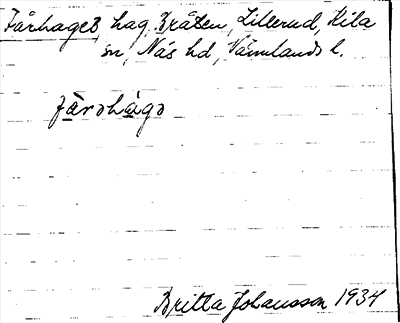 Fårhagen, hag, Bråten, Lillerud, Kila
sn, Näs hd, Värmlands l.
fårəhàgə
Britta Johansson 1934